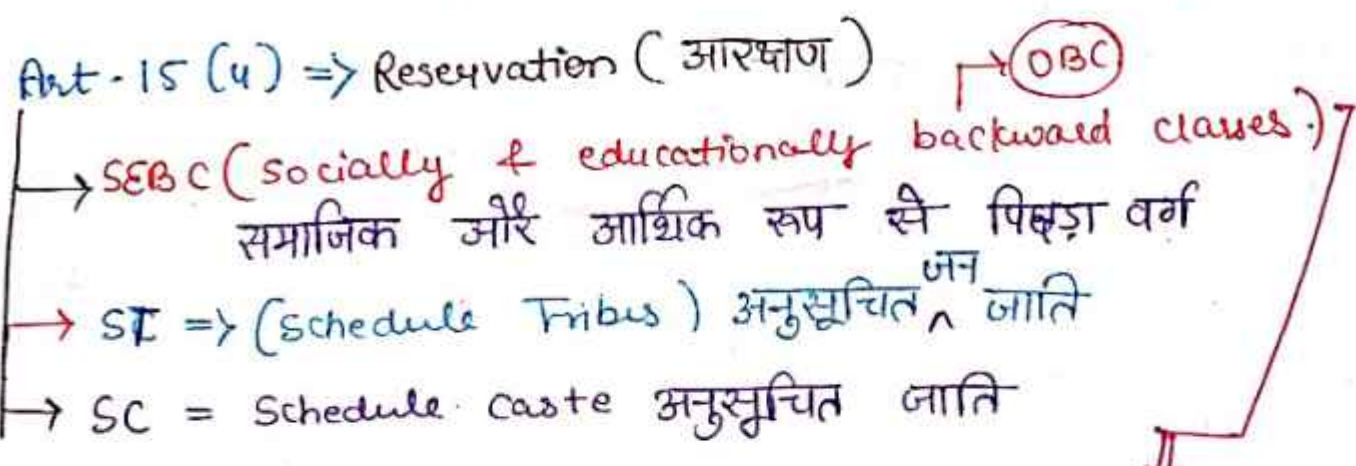 Art - 15 (4) => Reservation (आरक्षण)
→ OBC
→ SEBC (Socially & educationally backward classes.)
समाजिक और आर्थिक रूप से पिछड़ा वर्ग
→ ST => (Schedule Tribes) अनुसूचित ^ जन जाति
→ SC = Schedule caste अनुसूचित जाति